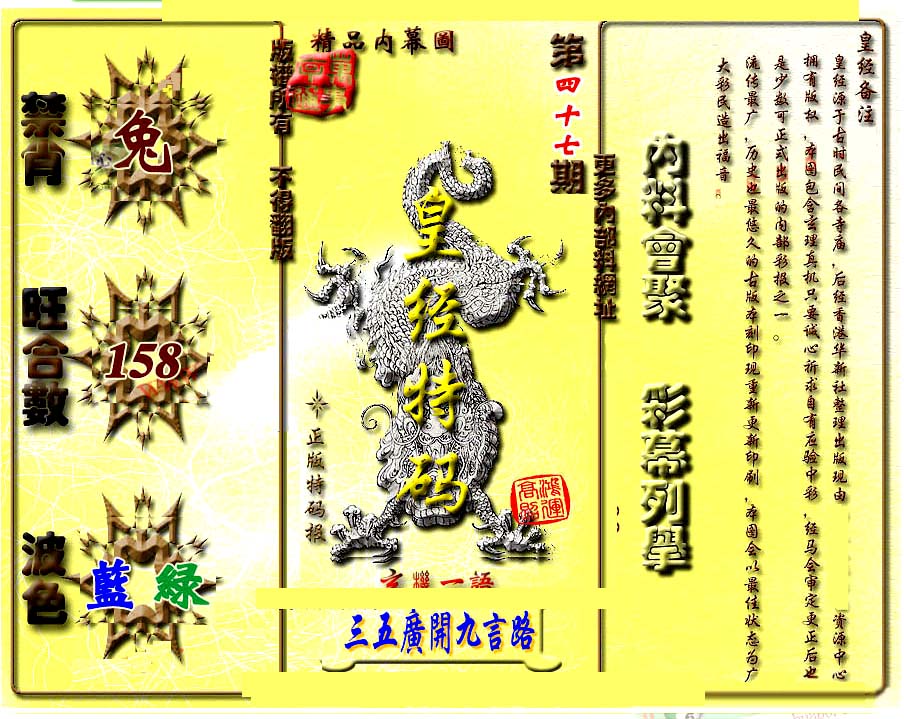 皇经备注
皇经源于古时民间各寺庙,后经香港华新社整理出版现由 资源中心
拥有版权,本图包含玄理真机只要诚心祈求自有应验中彩,经马会审定更正后也
是少数可正式出版的内部彩报之一。
流传最广,历史也最悠久的古版本刻印现重新更新印刷,本图会以最佳状态为广
大彩民造出福音
內料會聚 彩幕列舉
更多內部料網址
第四十七期
精品内幕圖
皇经特码
正版特码报
鴻運
高照
玄機一語
三五廣開九言路
版權所有 不得翻版
禁肖
兔
旺合數
158
波色
藍 綠